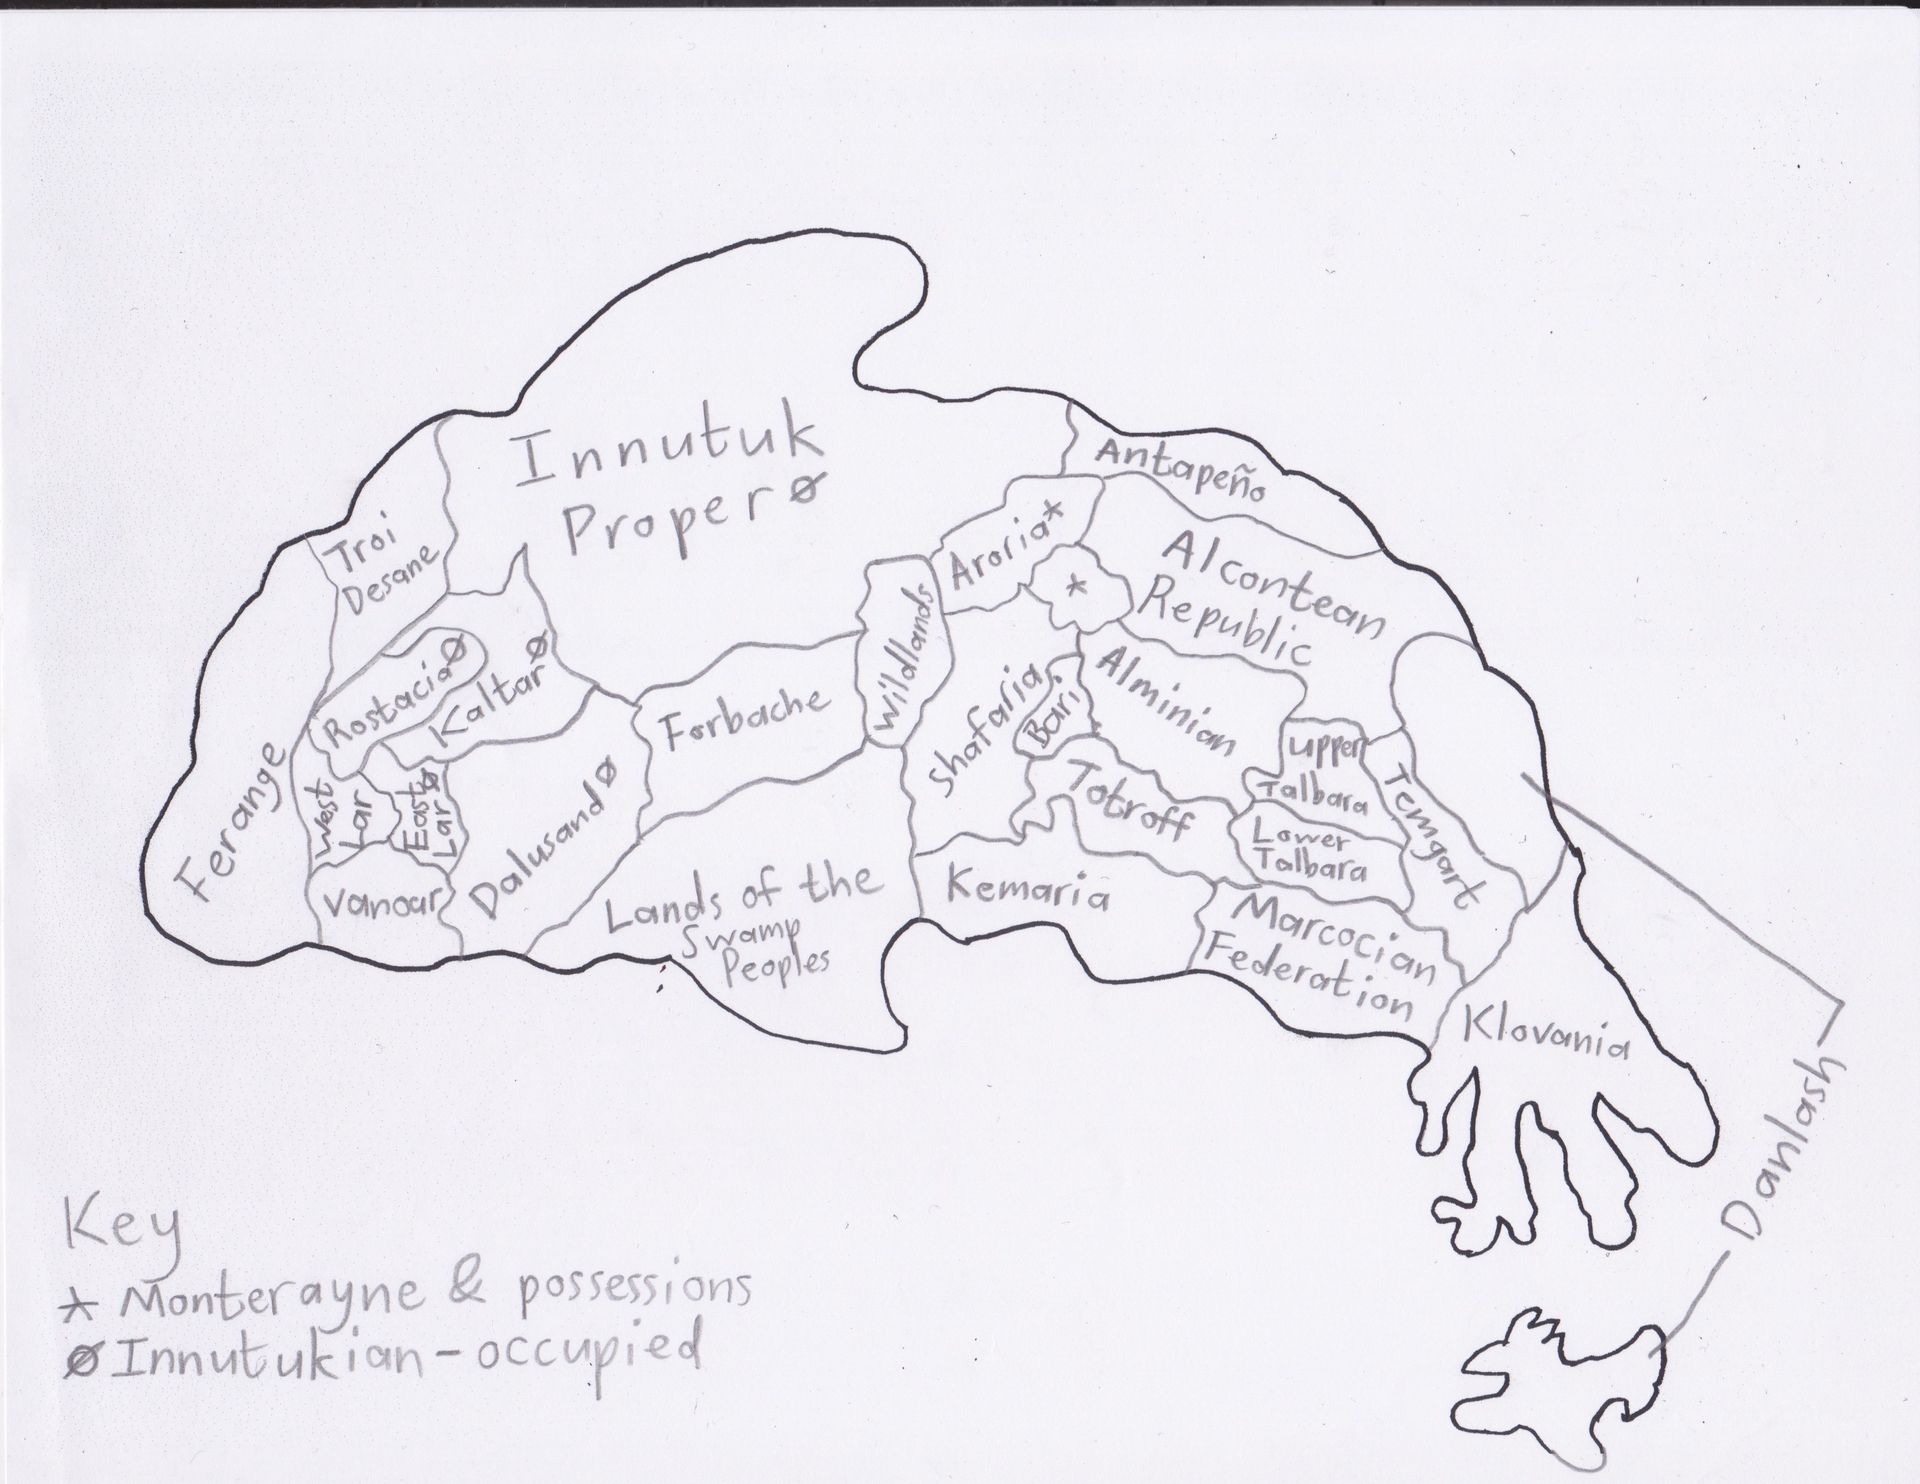 Innutuk
Proper Ø
Antapeño
Troi
Desane
Aroria*
*
Alcontean
Republic
Wildlands
Rostacia Ø
Kaltar Ø
Forbache
Shafaria
Bari
Alminian
Upper
Talbara
Temgart
Ferange
West
Lar
East
Lar Ø
Dalusand Ø
Totroff
Lower
Talbara
Vanoar
Lands of the
Swamp
Peoples
Kemaria
Marcocian
Federation
Klovania
Danlash
Key
* Monterayne & possessions
Ø Innutukian-occupied